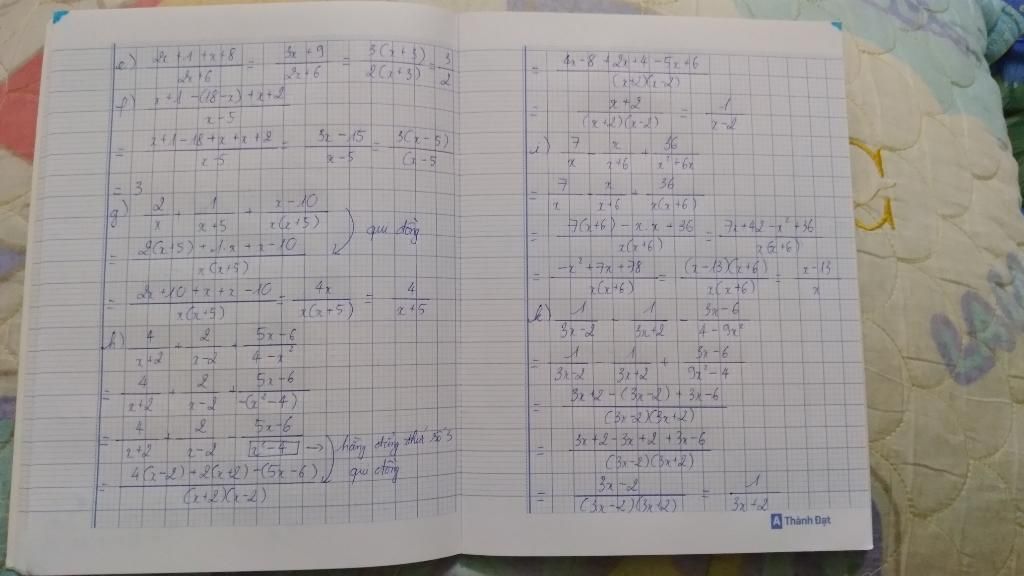 e) (2x+1+x+8)/(2x+6) = (3x+9)/(2x+6) = 3(x+3)/2(x+3) = 3/2
f) (x+1-(18-x)+x+2)/(x-5)
= (x+1-18+x+x+2)/(x-5) = (3x-15)/(x-5) = 3(x-5)/(x-5
= 3
g) 2/x + 1/(x+5) + (x-10)/x(x+5)
= (2(x+5)+1.x+x-10)/x(x+5) qui đồng
= (2x+10+x+x-10)/x(x+5) = 4x/x(x+5) = 4/(x+5)
h) 4/(x+2) + 2/(x-2) + (5x-6)/(4-x²)
= 4/(x+2) + 2/(x-2) + (5x-6)/-(x²-4)
= 4/(x+2) + 2/(x-2) - (5x-6)/(x²-4) → hằng đẳng thức số 3
= (4(x-2)+2(x+2)-(5x-6))/(x+2)(x-2) qui đồng
= (4x-8+2x+4-5x+6)/(x+2)(x-2)
= (x+2)/(x+2)(x-2) = 1/(x-2)
i) 7/x - x/(x+6) + 36/(x²+6x)
= 7/x - x/(x+6) + 36/x(x+6)
= (7(x+6)-x.x+36)/x(x+6) = (7x+42-x²+36)/x(x+6)
= (-x²+7x+78)/x(x+6) = (x-13)(x+6)/x(x+6) = (x-13)/x
k) 1/(3x-2) - 1/(3x+2) - (3x-6)/(4-9x²)
= 1/(3x-2) - 1/(3x+2) + (3x-6)/(9x²-4)
= (3x+2-(3x-2)+3x-6)/(3x-2)(3x+2)
= (3x+2-3x+2+3x-6)/(3x-2)(3x+2)
= (3x-2)/(3x-2)(3x+2) = 1/(3x+2)
A Thành Đạt